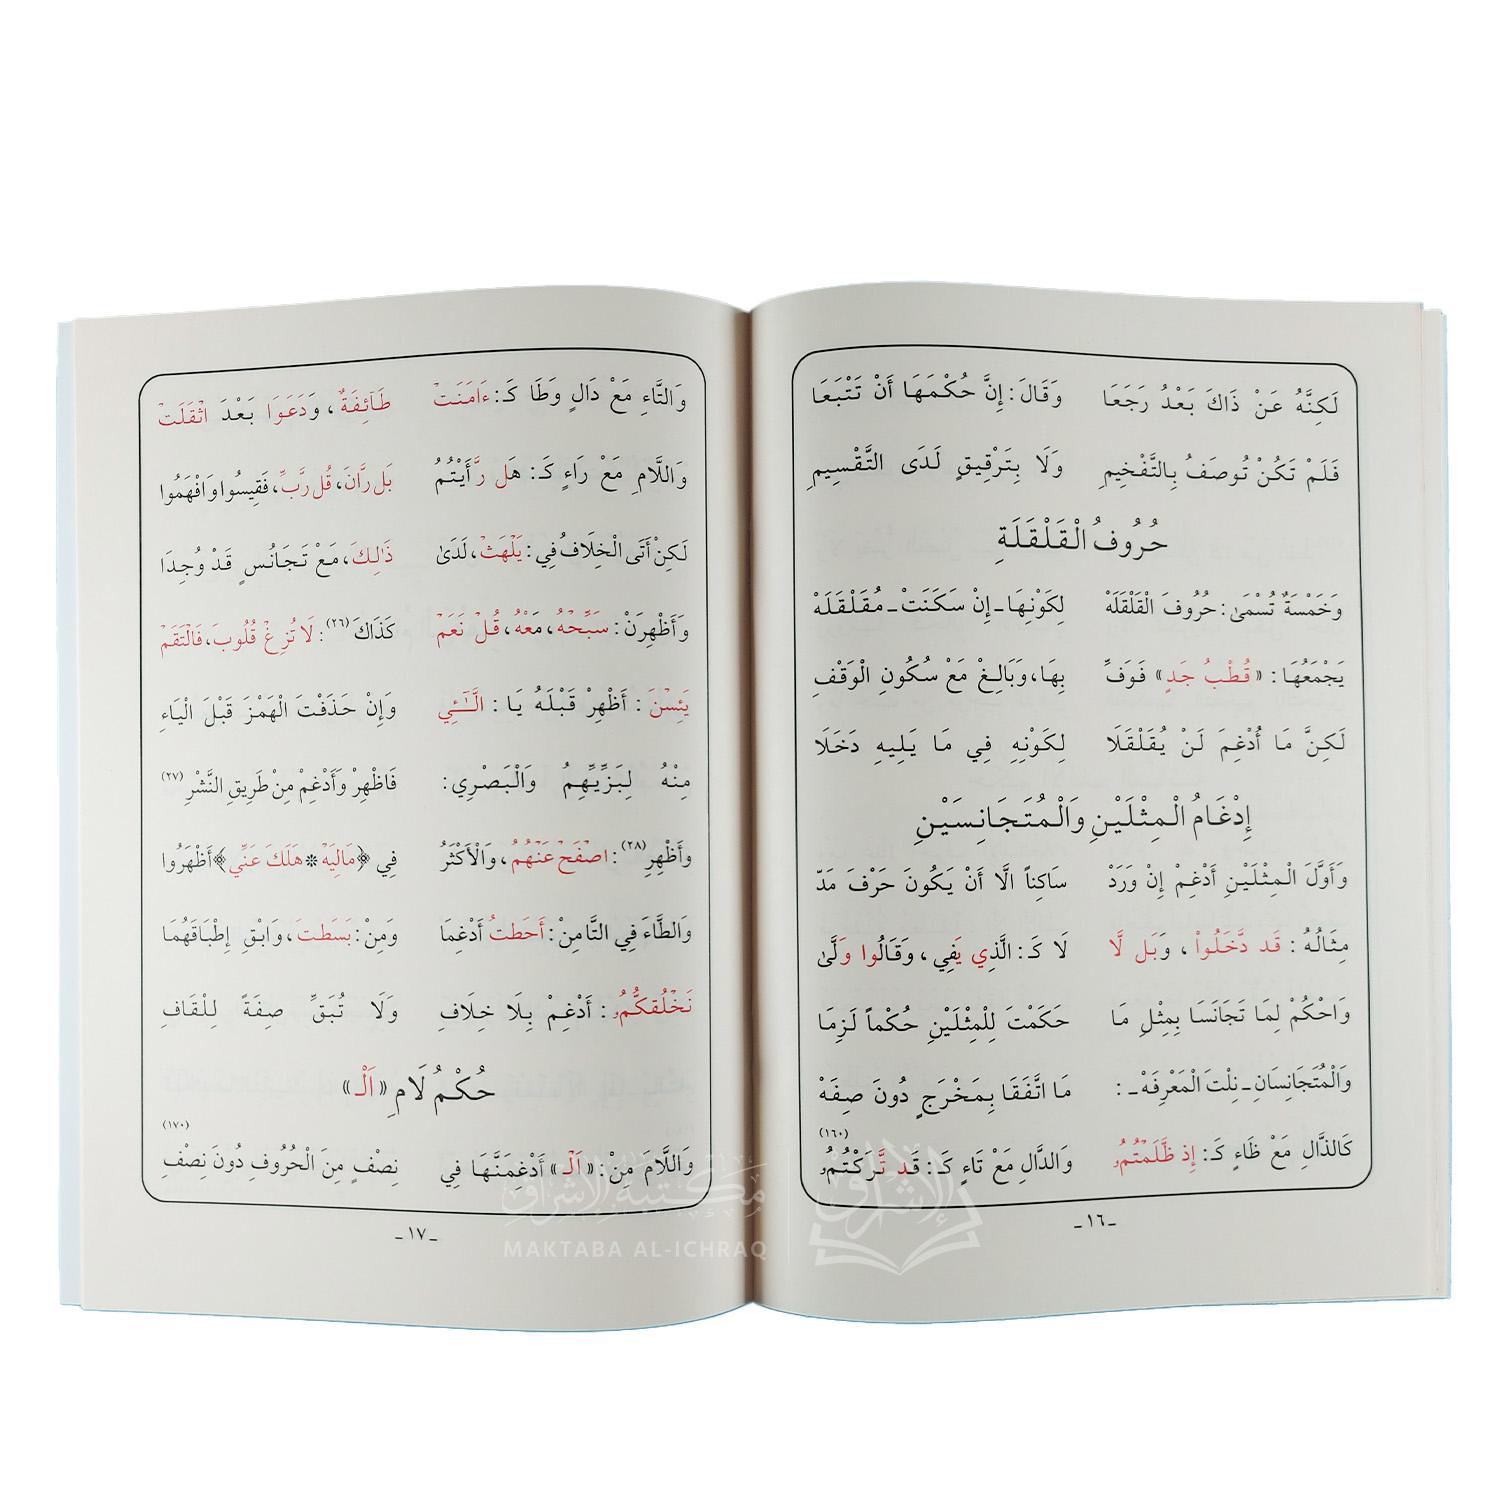 لَكِنَّهُ عَنْ ذَاكَ بَعْدُ رَجَعَا وَقَالَ: إِنَّ حُكْمَهَا أَنْ تَتْبَعَا
فَلَمْ تَكُنْ تُوصَفُ بِالتَّفْخِيمِ وَلَا بِتَرْقِيقٍ لَدَى التَّقْسِيمِ
حُرُوفُ الْقَلْقَلَةِ
وَخَمْسَةٌ تُسْمَىٰ: حُرُوفَ الْقَلْقَلَهْ لِكَوْنِهَا ـ إِنْ سَكَنَتْ ـ مُقَلْقَلَهْ
يَجْمَعُهَا: «قُطْبُ جَدٍ» فَوَفِّ بِهَا، وَبَالِغْ مَعْ سُكُونِ الْوَقْفِ
لَكِنَّ مَا أُدْغِمَ لَنْ يُقَلْقَلَا لِكَوْنِهِ فِي مَا يَلِيهِ دَخَلَا
إِدْغَامُ الْمِثْلَيْنِ وَالْمُتَجَانِسَيْنِ
وَأَوَّلَ الْمِثْلَيْنِ أَدْغِمْ إِنْ وَرَدْ سَاكِناً الَّا أَنْ يَكُونَ حَرْفَ مَدّ
مِثَالُهُ: قَد دَّخَلُواْ، وَبَل لَّا لَا كَـ: الَّذِي يَفِي، وَقَالُوا وَلَّىٰ
وَاحْكُمْ لِمَا تَجَانَسَا بِمِثْلِ مَا حَكَمْتَ لِلْمِثْلَيْنِ حُكْماً لَزِمَا
وَالْمُتَجَانِسَانِ ـ نِلْتَ الْمَعْرِفَهْ ـ: مَا اتَّفَقَا بِمَخْرَجٍ دُونَ صِفَهْ
كَالذَّالِ مَعْ ظَاءٍ كَـ: إِذ ظَّلَمْتُمُۥ وَالدَّالِ مَعْ تَاءٍ كَـ: قَد تَّرَكْتُمُۥ (١٦٠)
ـ ١٦ ـ
وَالتَّاءِ مَعْ دَالٍ وَطَا كَـ: ءَامَنَتْ طَآئِفَةٌ، وَدَعَوَا بَعْدَ اثْقَلَتْ
وَاللَّامِ مَعْ رَاءٍ كَـ: هَل رَّأَيْتُمُ بَل رَّانَ، قُل رَّبِّ، فَقِيسُوا وَافْهَمُوا
لَكِنْ أَتَى الْخِلَافُ فِي: يَلْهَثْ، لَدَىٰ ذَٰلِكَ، مَعْ تَجَانُسٍ قَدْ وُجِدَا
وَأَظْهِرَنْ: سَبِّحْهُ، مَعْهُ، قُلْ نَعَمْ كَذَاكَ (٢٦): لَا تُزِغْ قُلُوبَ، فَالْتَقَمْ
يَئِسْنَ: أَظْهِرْ قَبْلَهُ يَا: الَّـٰٓئِي وَإِنْ حَذَفْتَ الْهَمْزَ قَبْلَ الْيَاءِ
مِنْهُ لِبَزِّيِّهِمُ وَالْبَصْرِي: فَاظْهِرْ وَأَدْغِمْ مِنْ طَرِيقِ النَّشْرِ (٢٧)
وَأَظْهِرِ (٢٨): اصْفَحْ عَنْهُمُ، وَالْأَكْثَرُ فِي ﴿مَالِيَهْ * هَلَكَ عَنِّي﴾ أَظْهَرُوا
وَالطَّاءَ فِي التَّا مِنْ: أَحَطتُ أَدْغِمَا وَمِنْ: بَسَطتَ، وَابْقِ إِطْبَاقَهُمَا
نَخْلُقكُّمُۥ: أَدْغِمْ بِلَا خِلَافِ وَلَا تُبَقِّ صِفَةً لِلْقَافِ
حُكْمُ لَامِ «اَلْـ»
وَاللَّامَ مِنْ: «اَلْـ» أَدْغِمَنَّهَا فِي نِصْفٍ مِنَ الْحُرُوفِ دُونَ نِصْفِ (١٧٠)
ـ ١٧ ـ
مكتبة الإشراق
MAKTABA AL-ICHRAQ
الإشراق